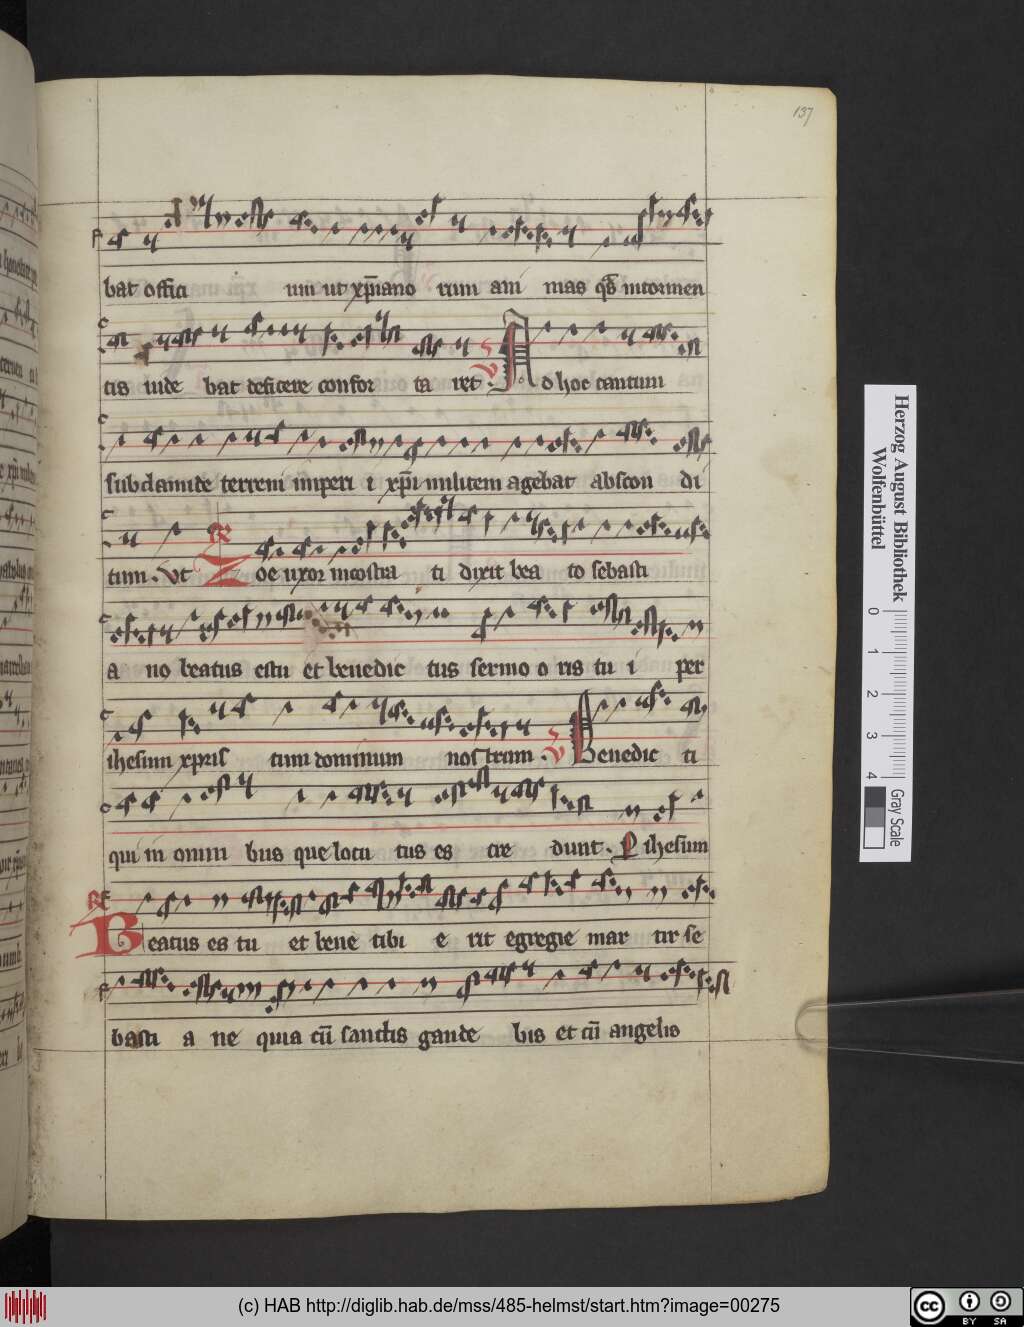 137
bat offici um ut xp̅iano rum ani mas qs̅ intormen
tis uide bat deficere confor ta ret . V Ad hoc tantum
sub clamide terreni imperi i xp̅i militem agebat abscon di
tum . Ut R Zoe uxor nicostra ti dixit bea to sebasti
a no beatus es tu et benedic tus sermo o ris tu i per
ihesum xpris tum dominum nos trum . V Benedic ti
qui in omni bus que locu tus es cre dunt . P ihesum
R Beatus es tu et bene tibi e rit egregie mar tir se
basti a ne quia cu̅ sanctis gaude bis et cu̅ angelis
Herzog August Bibliothek
Wolfenbüttel
0 1 2 3 4 Gray Scale
(c) HAB http://diglib.hab.de/mss/485-helmst/start.htm?image=00275
cc BY SA